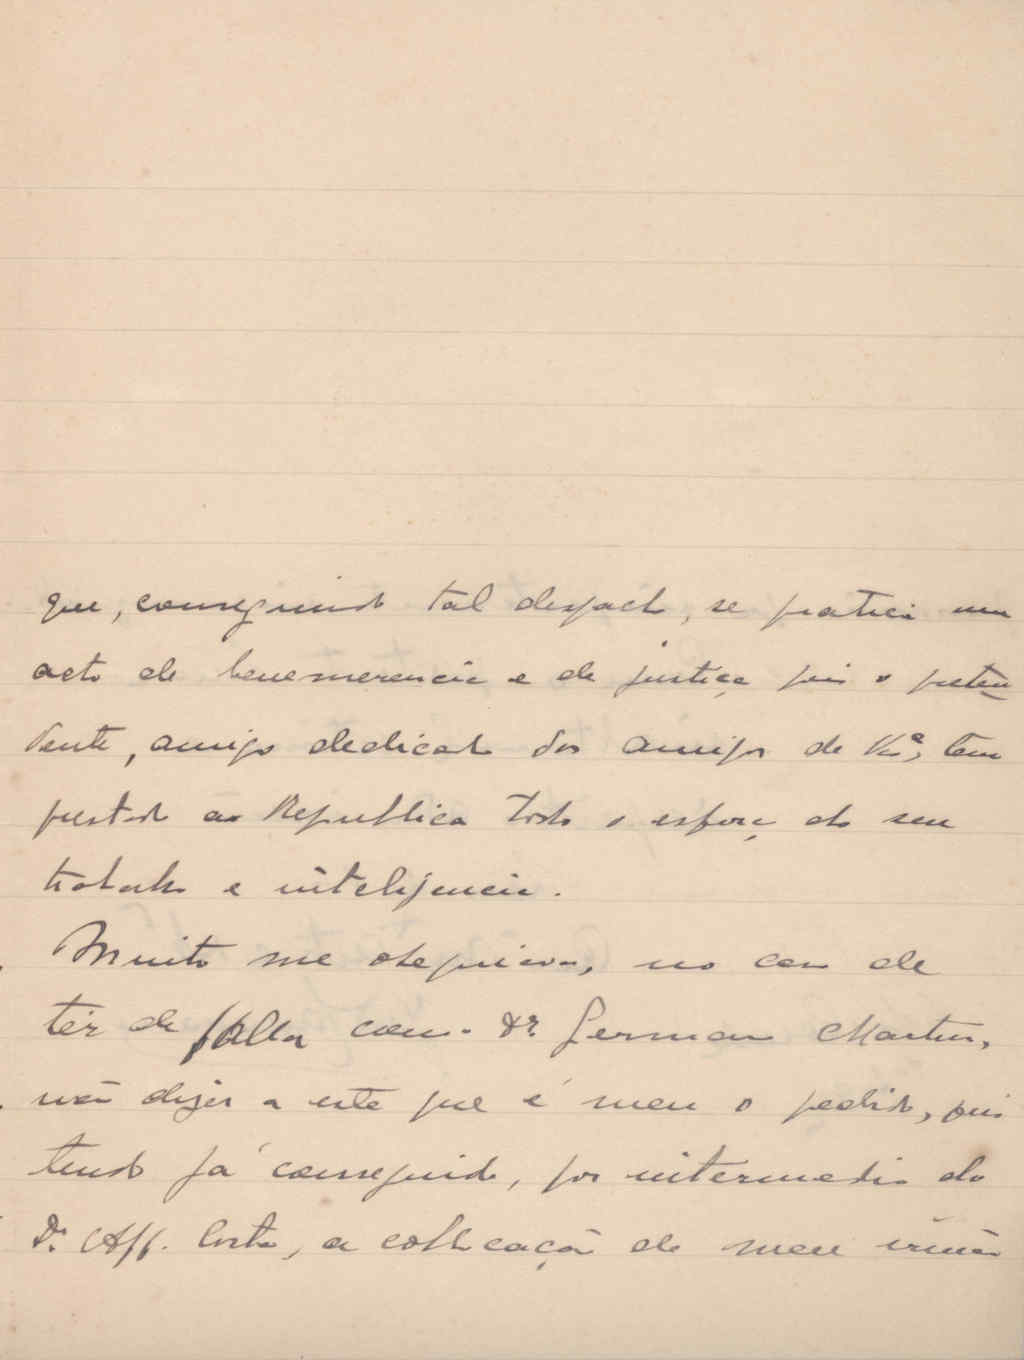 que, conseguindo tal despacho, se pratica um
acto de benemerencia e de justiça pois o preten
dente, amigo dedicado dos amigos de V. Exª, tem
prestado á Republica todo o esforço do seu
trabalho e inteligencia.
Muito me obsequiava, no caso de
ter de fallar com o Dr. Germano Martins,
não dizer a este que é meu o pedido, pois
tendo já conseguido, por intermedio do
Dr. Aff. Costa, a collocação de meu irmão